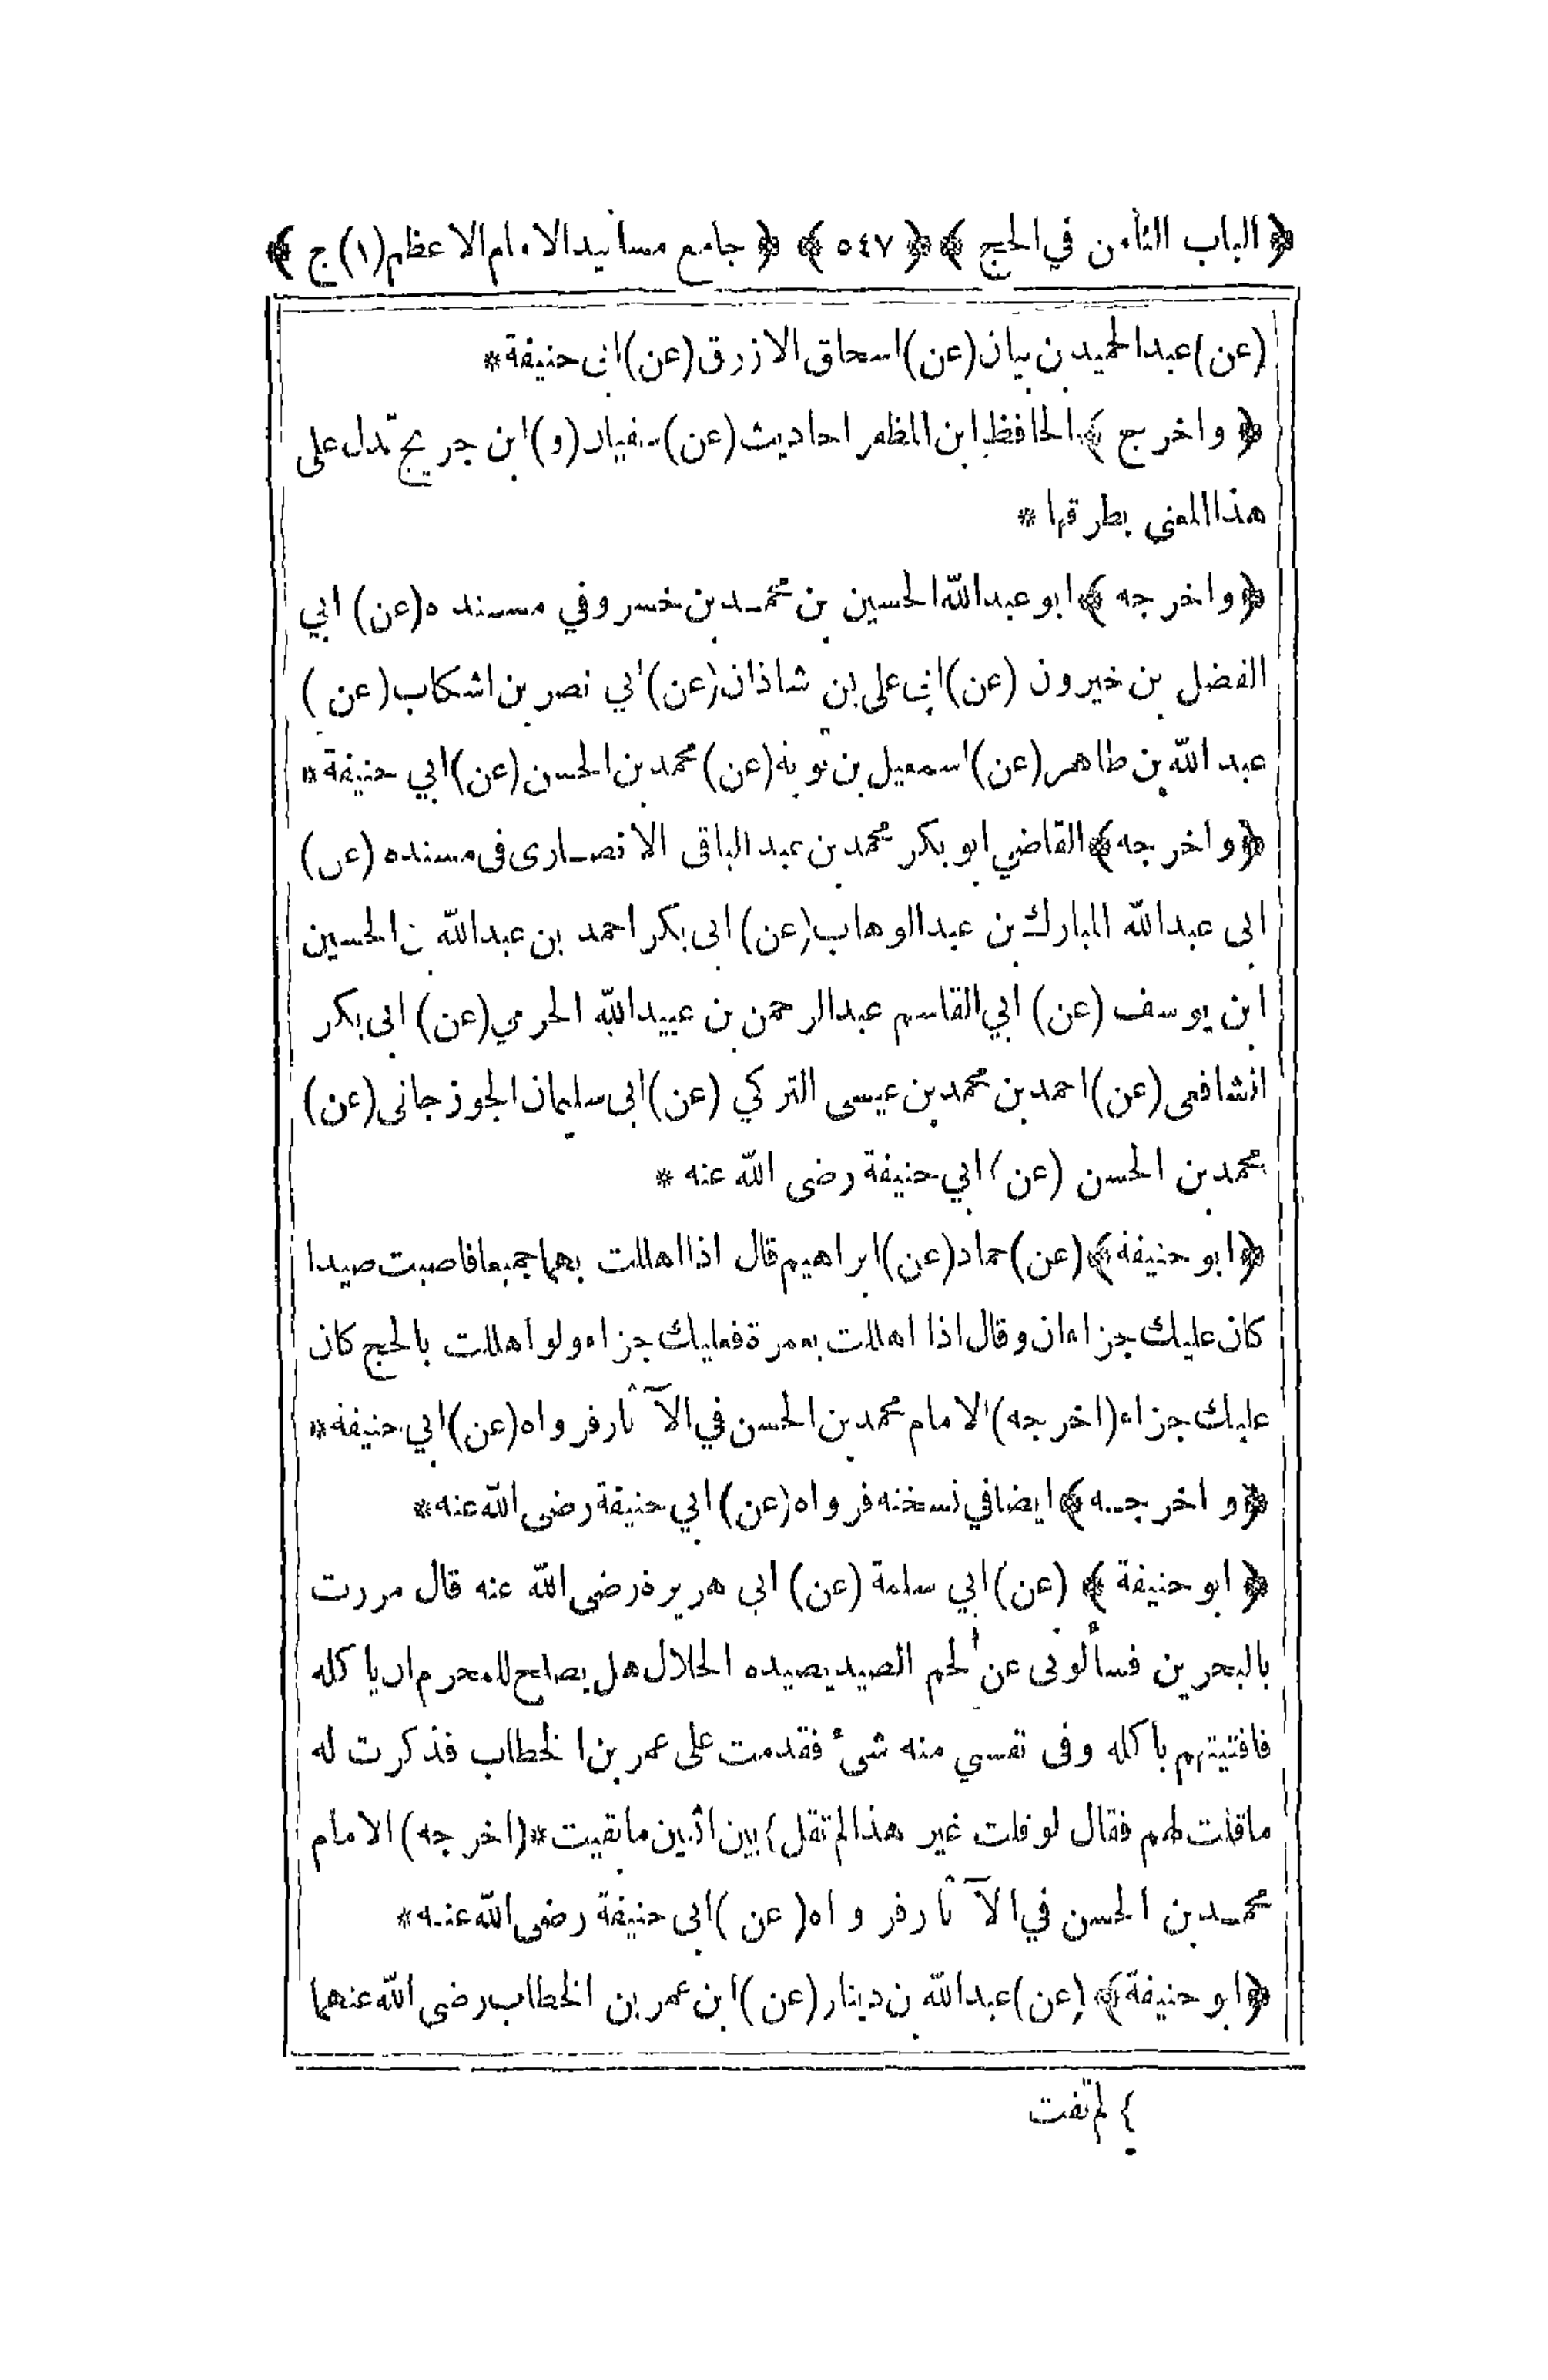 ﴿ الباب الثامن في الحج ﴾ ﴿ ٥٤٧ ﴾ ﴿ جامع مسانيد الامام الاعظم (١) ج ﴾
(عن) عبد الحميد بن بيان (عن) اسحاق الازرق (عن) ابى حنيفة *
﴿ واخرج ﴾ الحافظ ابن المظفر احاديث (عن) سفيان (و) ابن جريج تدل على
هذا المعنى بطرقها *
﴿ واخرجه ﴾ ابو عبد الله الحسين بن محمد بن خسرو في مسنده (عن) ابي
الفضل بن خيرون (عن) ابى على بن شاذان (عن) ابي نصر بن اشكاب (عن)
عبد الله بن طاهر (عن) اسمعيل بن توبة (عن) محمد بن الحسن (عن) ابي حنيفة *
﴿ واخرجه ﴾ القاضي ابو بكر محمد بن عبد الباقى الانصارى فى مسنده (عن)
ابى عبد الله المبارك بن عبد الوهاب (عن) ابى بكر احمد بن عبد الله بن الحسين
ابن يوسف (عن) ابي القاسم عبد الرحمن بن عبيد الله الحرمي (عن) ابى بكر
الشافعى (عن) احمد بن محمد بن عيسى التركي (عن) ابى سليمان الجوزجانى (عن)
محمد بن الحسن (عن) ابي حنيفة رضى الله عنه *
﴿ ابو حنيفة ﴾ (عن) حماد (عن) ابراهيم قال اذا اهللت بهما جميعا فاصبت صيدا
كان عليك جزاءان وقال اذا اهللت بعمرة فعليك جزاء ولو اهللت بالحج كان
عليك جزاء (اخرجه) الامام محمد بن الحسن في الآثار فرواه (عن) ابي حنيفة *
﴿ واخرجه ﴾ ايضا في نسخته فرواه (عن) ابي حنيفة رضى الله عنه *
﴿ ابو حنيفة ﴾ (عن) ابي سلمة (عن) ابي هريرة رضى الله عنه قال مررت
بالبحرين فسألونى عن لحم الصيد يصيده الحلال هل يصلح للمحرم ان ياكله
فافتيتهم باكله وفى نفسي منه شئ فقدمت على عمر بن الخطاب فذكرت له
ماقلت لهم فقال لو قلت غير هذا لم تقل } بين اثنين ما بقيت * (اخرجه) الامام
محمد بن الحسن في الآثار فرواه (عن) ابى حنيفة رضى الله عنه *
﴿ ابو حنيفة ﴾ (عن) عبد الله بن دينار (عن) ابن عمر بن الخطاب رضى الله عنهما
} لم تفت